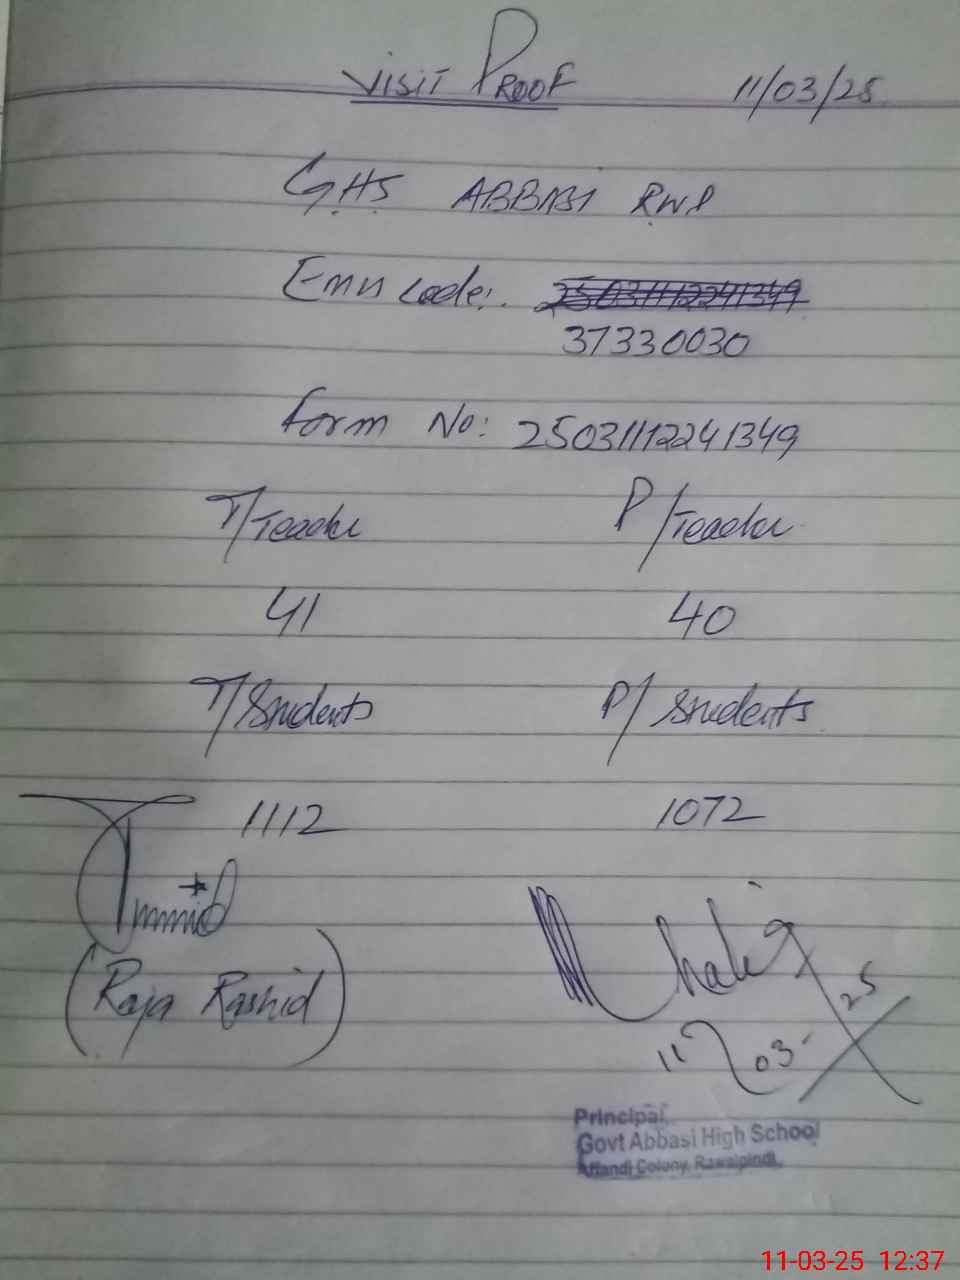 VISIT PROOF 11/03/25
GHS ABBASI RWP
Emis code: 25031112241349
37330030
Form No: 25031112241349
T/Teacher P/Teacher
41 40
T/Students P/Students
1112 1072
(Raja Rashid)
11 03-25
Principal
Govt Abbasi High School
Affandi Colony, Rawalpindi
11-03-25 12:37